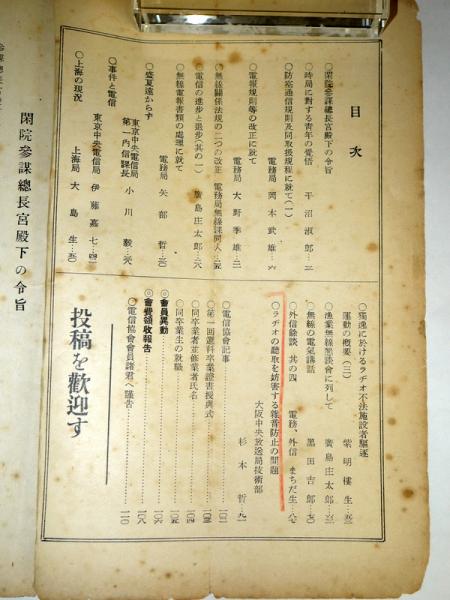 目次
○閑院參謀總長宮殿下の令旨
○時局に對する青年の覺悟 平沼淑郎…二
○防空通信規則及同取扱規程に就て(一)
電務局 岡本武雄…六
○電報規則等の改正に就て
電務局 大野季雄…三
○無線關係法規の二つの改正 電務局無線課同人…
○電信の進歩と退步(其の一) 廣島庄太郎…六
○無線電報書類の處理に就て
電務局 矢部哲…
○盛夏遠からず
東京中央電信局
第一內信課長 小川毅…
○事件と電信
東京中央電信局 伊藤嘉七…
○上海の現況
上海局 大島生…
○獨逸に於けるラヂオ不法施設者驅逐
運動の概要(三) 紫明樓生…
○漁業無線懇談會に列して
廣島庄太郎…
○無線の電氣講話 黒田吉郎…
○外信餘談 其の四 電務、外信 まちだ生…
○ラヂオの聽取を妨害する雜音防止の問題
大阪中央放送局技術部
杉本哲…九一
○電信協會記事………一〇一
○第一回選科卒業證書授與式………一〇三
○同卒業者並修業者氏名………一〇四
○同卒業生の就職………一〇五
◎會員異動………一〇六
◎會費領收報告………一〇八
○電信協會會員諸君へ謹告………一一〇
投稿を歡迎す
閑院參謀總長宮殿下の令旨